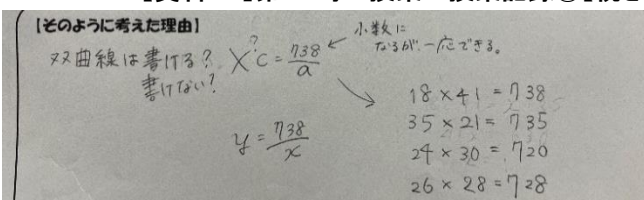 【そのように考えた理由】
双曲線は書ける?
書けない?
X?C = 738/a
← 小数に
なるが、一応できる。
y = 738/x
18 × 41 = 738
35 × 21 = 735
24 × 30 = 720
26 × 28 = 728